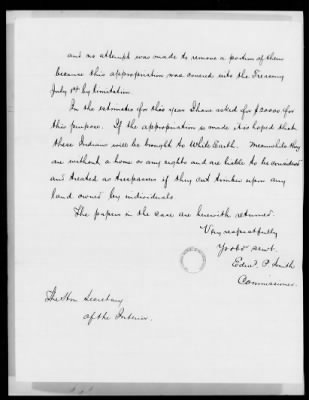 and no attempt was made to remove a portion of them
because this appropriation was covered into the Treasury
July 1st by limitation.
In the estimates for this year I have asked for $20000 for
this purpose. If the appropriation is made it is hoped that
these Indians will be brought to White Earth. Meanwhile they
are without a home or any rights and are liable to be arrested
and treated as trespassers if they cut timber upon any
land owned by individuals.
The papers in the case are herewith returned.
Very respectfully
Yr obt servt.
Edw. P. Smith
Commissioner.
The Hon Secretary
of the Interior.